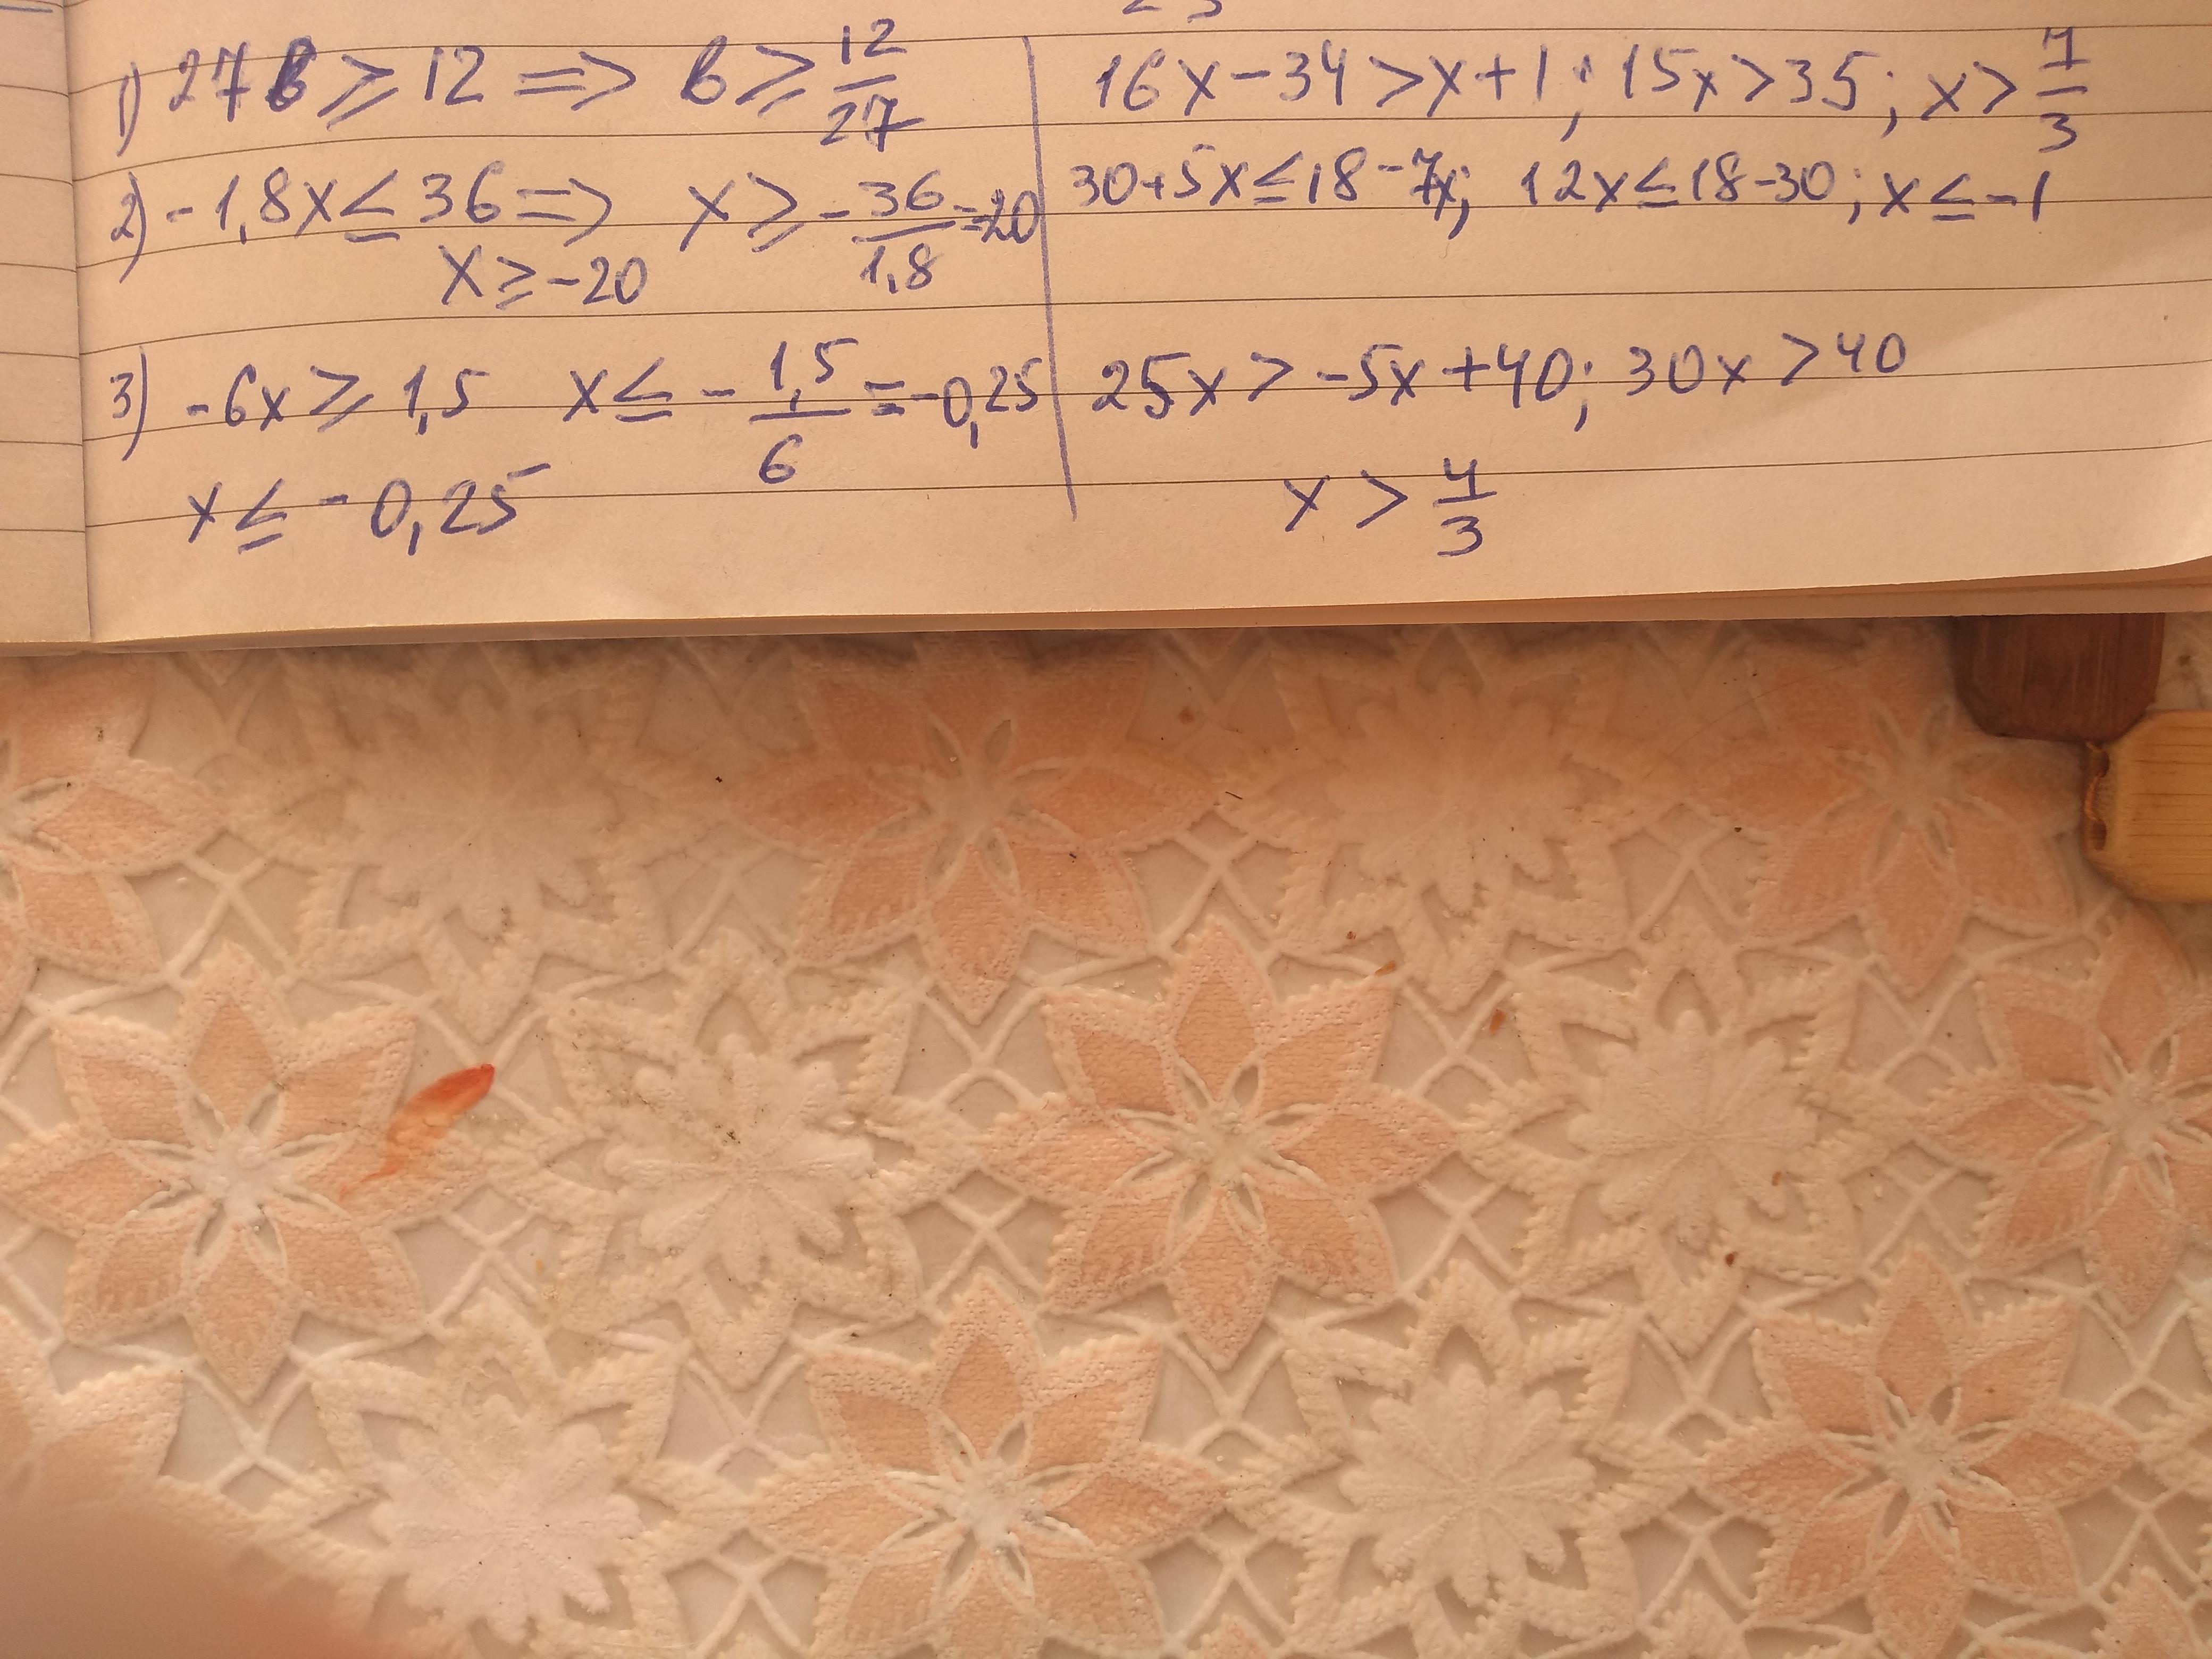 1) 27b ≥ 12 => b ≥ 12/27
2) -1,8x ≤ 36 => x ≥ -36/1,8 = -20
x ≥ -20
3) -6x ≥ 1,5 x ≤ -1,5/6 = -0,25
x ≤ -0,25
16x - 34 > x + 1; 15x > 35; x > 7/3
30+5x ≤ 18 - 7x; 12x ≤ 18-30; x ≤ -1
25x > -5x + 40; 30x > 40
x > 4/3